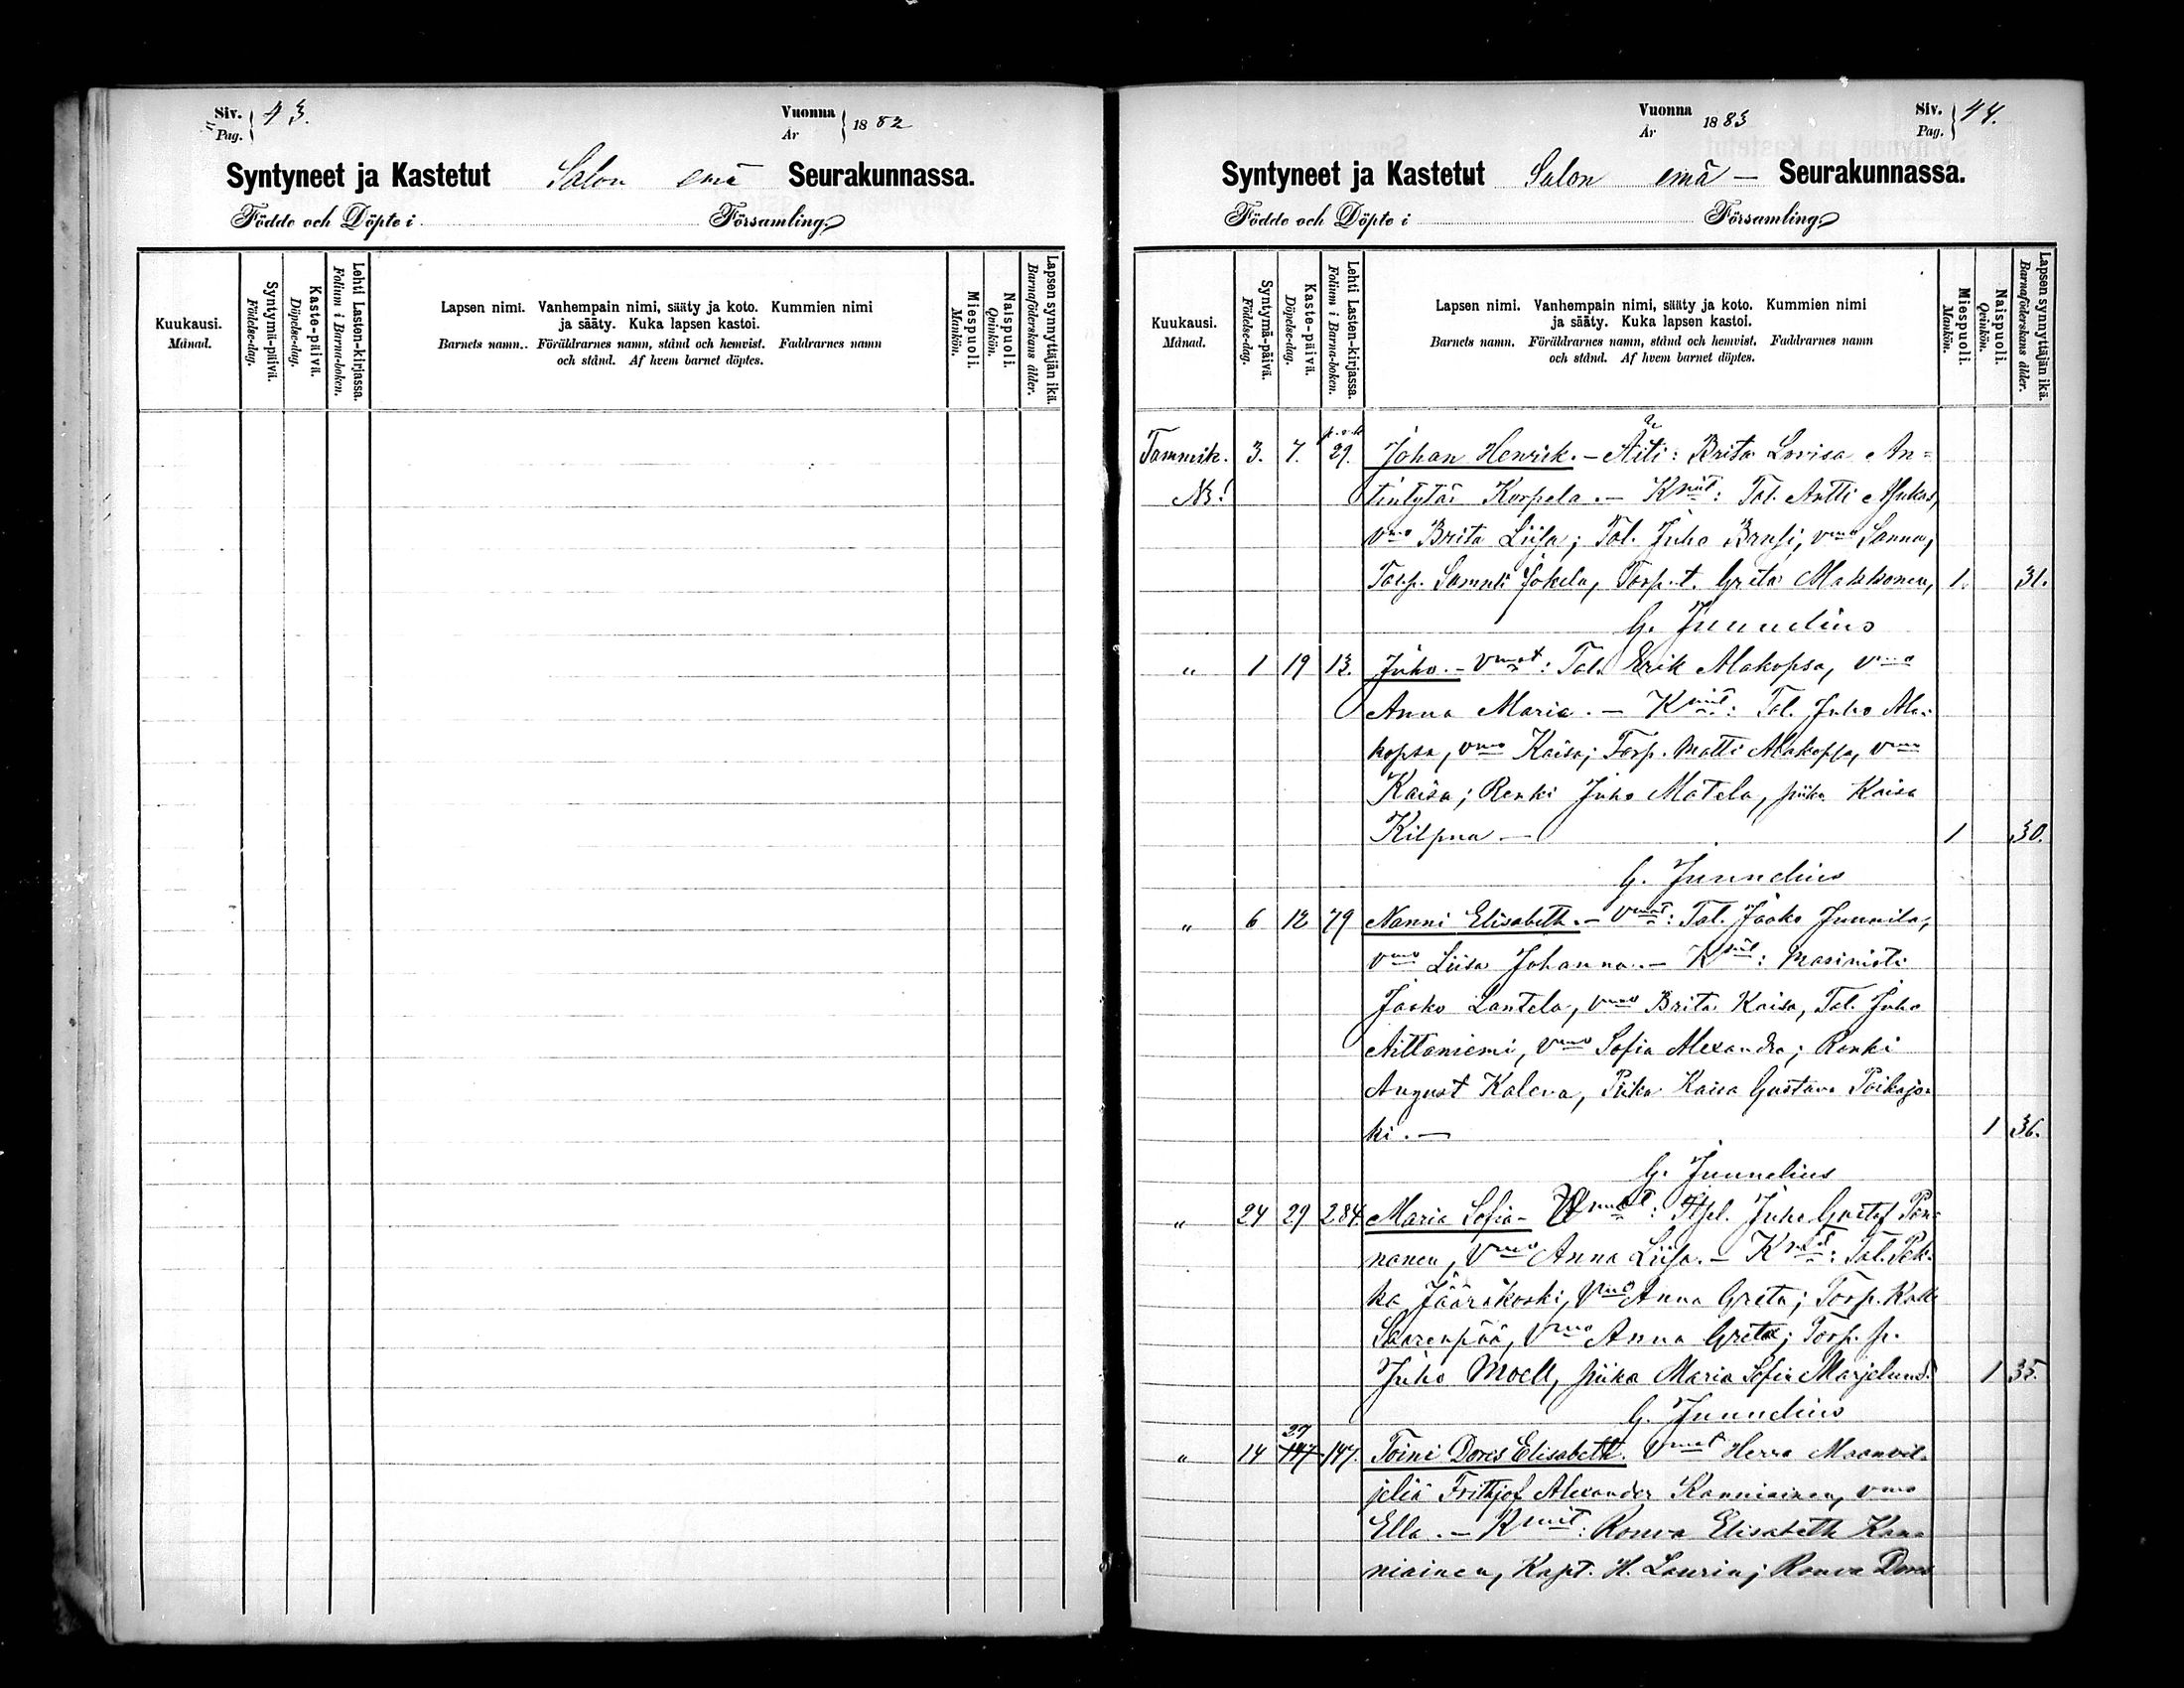 Siv. 43.
Pag.
Vuonna 1882
År
Syntyneet ja Kastetut Salon emä Seurakunnassa.
Födde och Döpte i Församling.
Kuukausi.
Månad.
Syntymä-päivä.
Födelse-dag.
Kaste-päivä.
Döpelse-dag.
Lehti Lasten-kirjassa.
Folium i Barna-boken.
Lapsen nimi. Vanhempain nimi, sääty ja koto. Kummien nimi
ja sääty. Kuka lapsen kastoi.
Barnets namn.. Föräldrarnes namn, stånd och hemvist. Faddrarnes namn
och stånd. Af hvem barnet döptes.
Miespuoli.
Mankön.
Naispuoli.
Qvinkön.
Lapsen synnyttäjän ikä.
Barnaföderskans ålder.
Vuonna 1883
År
Siv. 44.
Pag.
Syntyneet ja Kastetut Salon emä - Seurakunnassa.
Födde och Döpte i Församling.
Kuukausi.
Månad.
Syntymä-päivä.
Födelse-dag.
Kaste-päivä.
Döpelse-dag.
Lehti Lasten-kirjassa.
Folium i Barna-boken.
Lapsen nimi. Vanhempain nimi, sääty ja koto. Kummien nimi
ja sääty. Kuka lapsen kastoi.
Barnets namn. Föräldrarnes namn, stånd och hemvist. Faddrarnes namn
och stånd. Af hvem barnet döptes.
Miespuoli.
Mankön.
Naispuoli.
Qvinkön.
Lapsen synnyttäjän ikä.
Barnaföderskans ålder.
Tammik. 3. 7. 29. Johan Henrik. - Äiti: Brita Lovisa An=
tintytär Korpela. - Kmit: Tal. Antti
vmo Brita Liisa; Tal. Juho vmo Sanna,
Torp. Samuli Jokela, Torp. t. Greta Makkonen, 1. 31.
G. Junnelius
" 1 19 13. Juho. - Vmat: Tal. Erik Alakopsa, vmo
Anna Maria. - Kmit: Tal. Juho Ala-
kopsa, vmo Kaisa; Torp. Matti Alakopsa, vmo
Kaisa; Renki Juho Matela, piika Kaisa
Kilpua - 1 30.
G. Junnelius
" 6 12 79 Nanni Elisabeth. - Vmat: Tal. Jaako Junnila,
vmo Liisa Johanna. - Kmit: Masinisti
Jaako Lantela, vmo Brita Kaisa, Tal. Juho
Aittaniemi, vmo Sofia Alexandra; Renki
August Kaleva, Piika Kaisa Gustava Poikajo-
ki. - 1 36.
G. Junnelius
" 24 29 284. Maria Sofia - Vmat: Itsel. Juho Gustaf Pön-
nänen, Vmo Anna Liisa. - Kmit: Tal. Pek-
ka Jääräkoski, Vmo Anna Greta; Torp. Kalle
Saarenpää, Vmo Anna Greta; Torp. p.
Juho Moell, piika Maria Sofia Marjelund. 1 35.
G. Junnelius
" 14 29 147. Toini Dores Elisabeth. Vmat Herra Maanvil-
jeliä Frithjof Alexander Kanniainen, vmo
Ella. - Kmit: Rouva Elisabeth Kan-
niainen, Kapt. H. Laurin; Rouva Dores